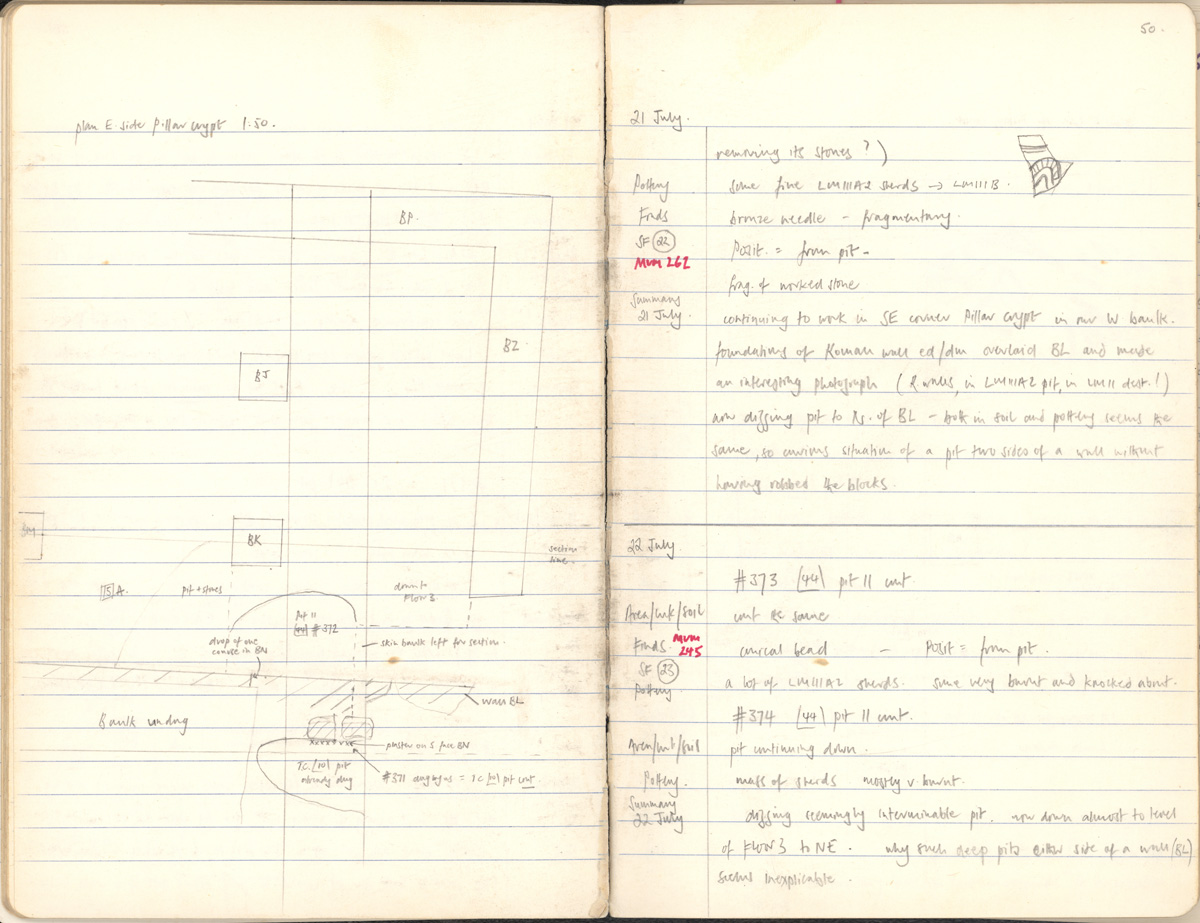 plan E. side Pillar Crypt 1:50.
BP.
BZ
BJ
BM
BK
section
line.
A.
pit + stones
down to
Floor 3
Pit 11
[44] #372
drop of one
course in BN
skin baulk left for section.
wall BL
Baulk undug
plaster on S face BN
T.C. [70] pit
already dug
#371 dug as = T.C. [70] pit cont.
50.
21 July.
removing its stones?)
Pottery some fine LMIIIA2 sherds → LMIIIB.
Finds bronze needle – fragmentary.
SF (22) Posit. = from pit –
MVM 262
frag. of worked stone
Summary
21 July. continuing to work in SE corner Pillar Crypt in our W baulk.
foundations of Roman wall ed/dm overlaid BL and made
an interesting photograph (R walls, in LMIIIA2 pit, in LMII dest.!)
now digging pit to N. of BL – both in soil and pottery seems the
same, so curious situation of a pit two sides of a wall without
having robbed the blocks.
22 July
#373 [44] pit 11 cont.
Area/unit/soil cont the same
Finds. MVM 245 conical bead – Posit = from pit.
SF (23)
Pottery a lot of LMIIIA2 sherds. Some very burnt and knocked about.
#374 [44] pit 11 cont.
Area/unit/soil pit continuing down.
Pottery. mass of sherds mostly v. burnt.
Summary
22 July digging seemingly interminable pit. now down almost to level
of Floor 3 to NE. why such deep pits either side of a wall (BL)
seems inexplicable.